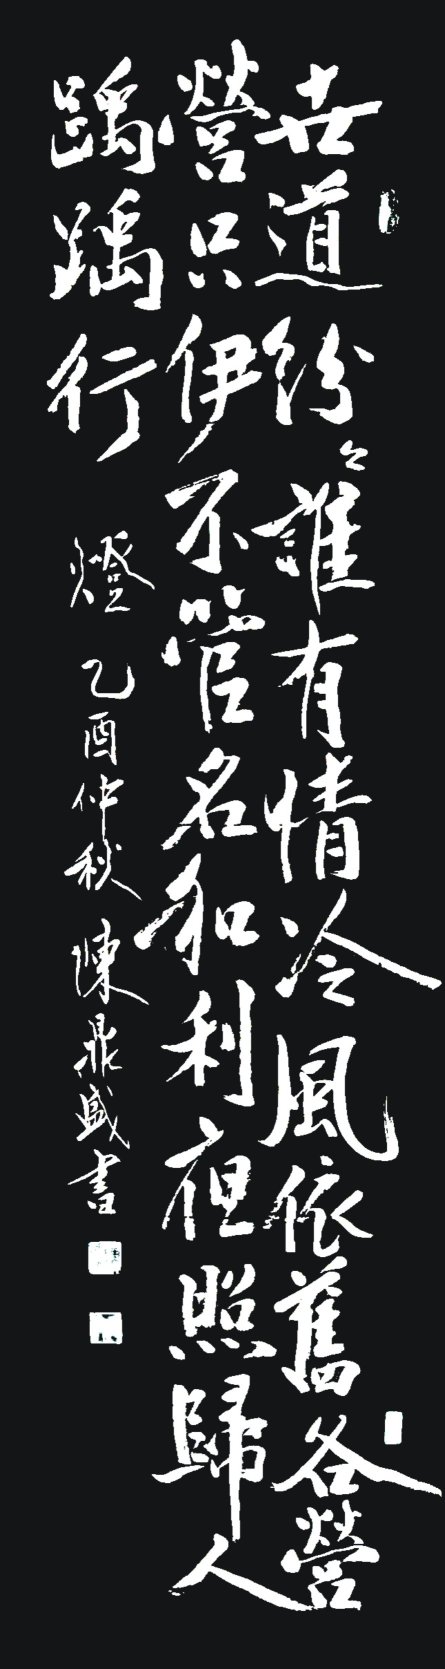 世道紛々誰有情冷風依舊各營
營只伊不管名和利但照歸人
踽踽行 燈 乙酉仲秋 陳鼎盛書